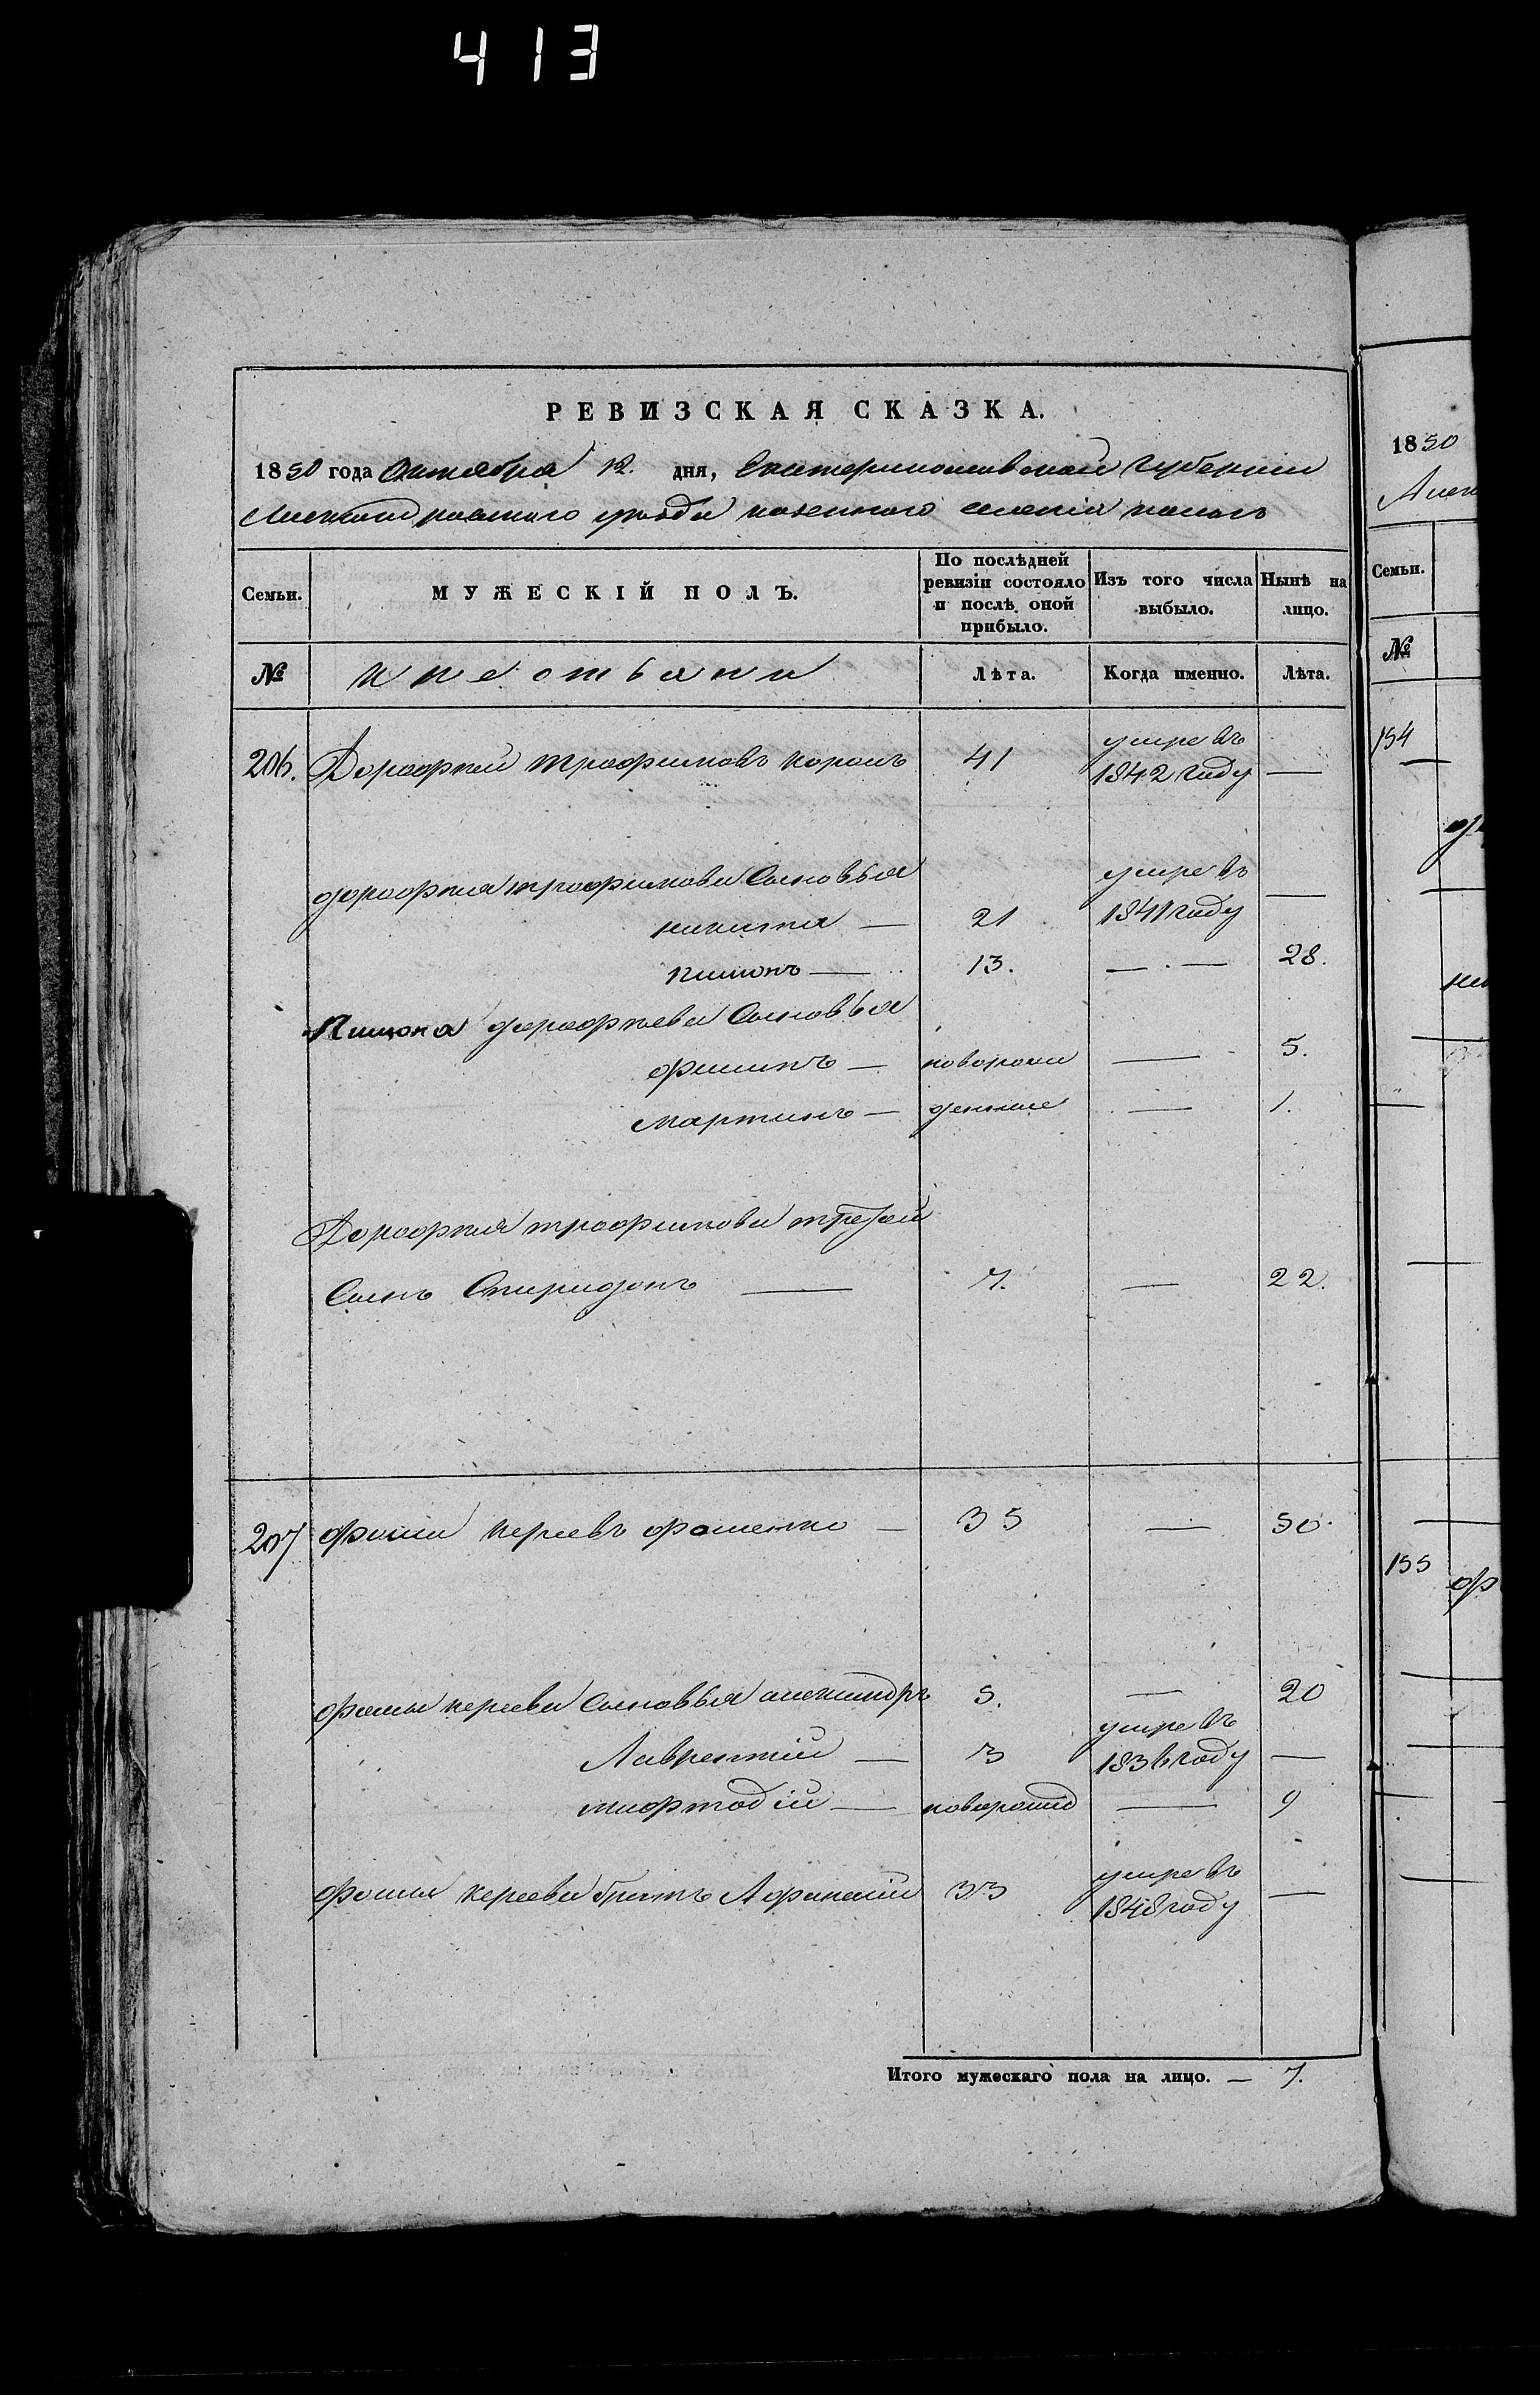 413
РЕВИЗСКАЯ СКАЗКА.
1850 года Октября 12. дня, Екатеринославской Губернии
Александровского уезда казенного селенія
Семьи.
МУЖЕСКІЙ ПОЛЪ.
По послѣдней ревизіи состояло и послѣ оной прибыло.
Изъ того числа выбыло.
Нынѣ на лицо.
№
крестьяни
Лѣта.
Когда именно.
Лѣта.
206. Дорофей трофимовъ 41 умре въ 1842 году —
дорофия трофимова Сыновья
никита — 21 умре въ 1841 году —
пимонъ — 13. — 28.
Пимона дорофеева Сыновья
филипъ — новорож — 5.
мартинъ — денные — 1.
Дорофия трофимова третей
Сынъ Спиридонъ — 7. — 22.
207 фома карпевъ фоменко — 35 — 50.
фомы Сыновья александръ 5. — 20
Лаврентій — 3 умре въ 1836 году —
мифтодій — новорожд — 9
фомы братъ Афанасій 33 умре въ 1848 году —
Итого мужескаго пола на лицо. — 7.
1850
Алек
Семьи.
№
154
155